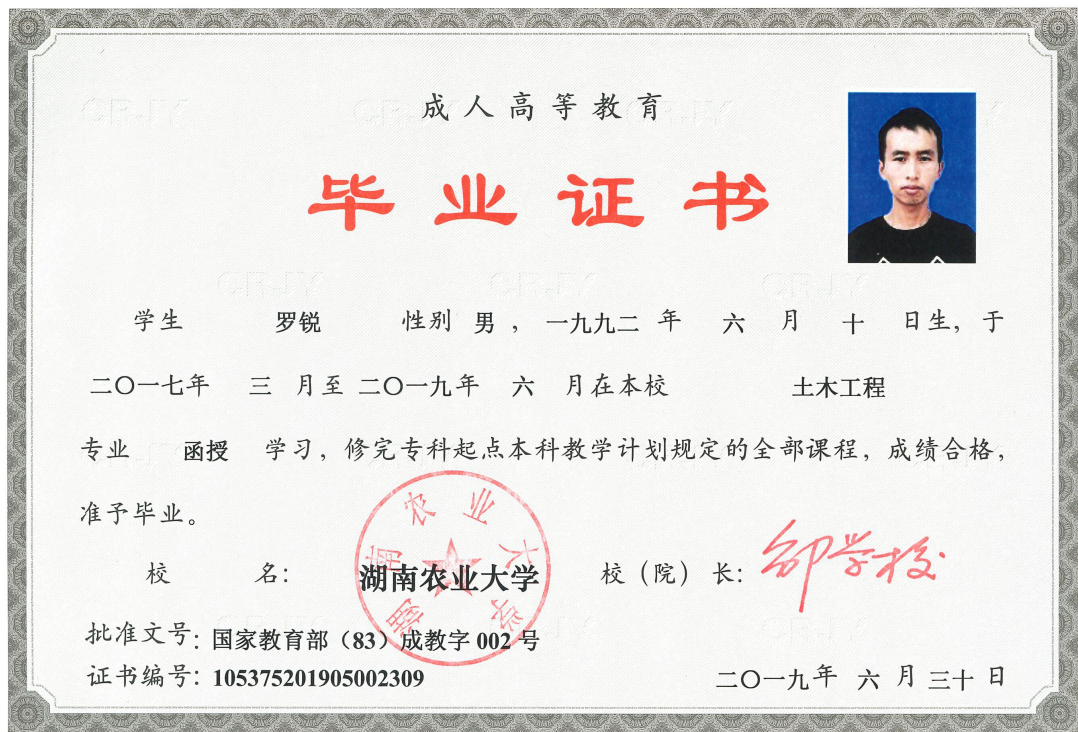 成人高等教育
毕业证书
学生 罗锐 性别 男，一九九二 年 六 月 十 日生，于
二〇一七年 三 月至 二〇一九年 六 月在本校 土木工程
专业 函授 学习，修完专科起点本科教学计划规定的全部课程，成绩合格，
准予毕业。
湖南农业大学
校 名：湖南农业大学 校（院）长：
批准文号：国家教育部（83）成教字 002 号
证书编号：105375201905002309
二〇一九年 六 月 三十 日